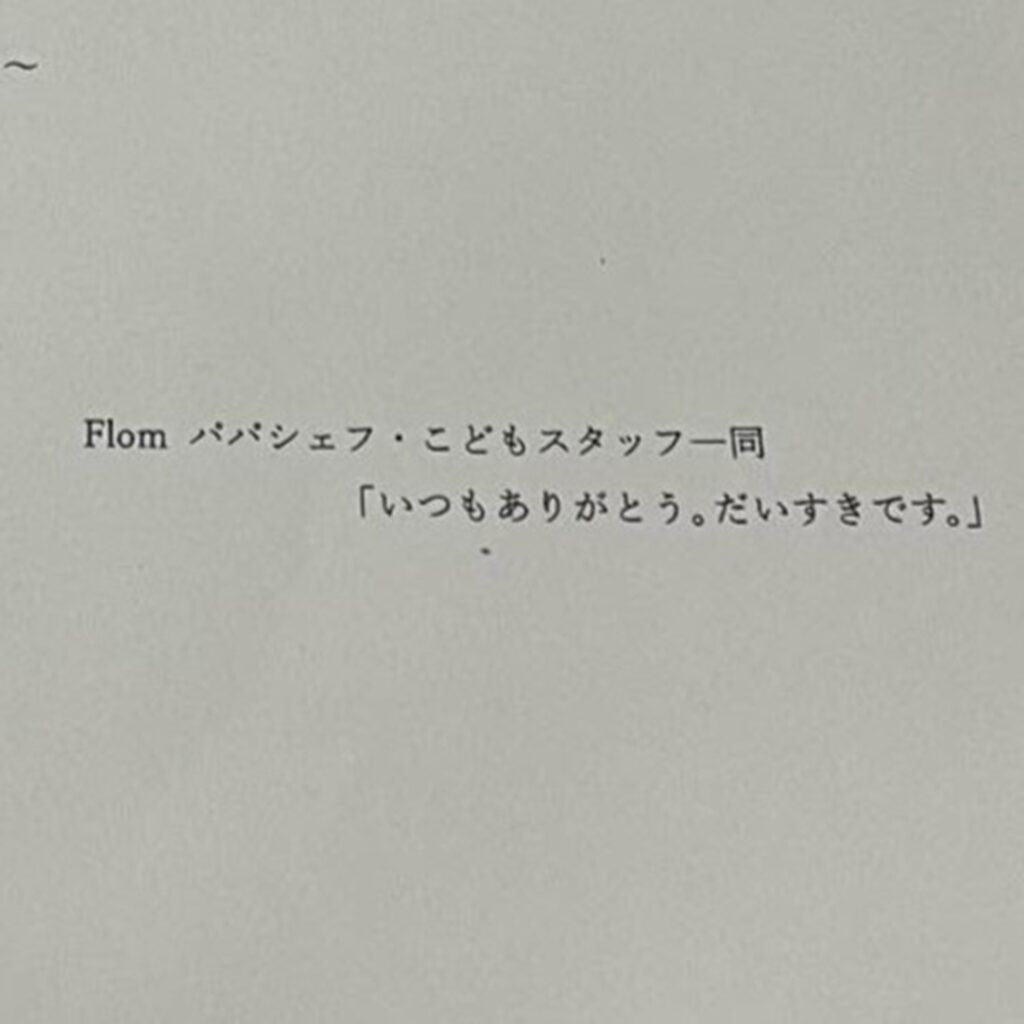 ～
Flom パパシェフ・こどもスタッフ一同
「いつもありがとう。だいすきです。」